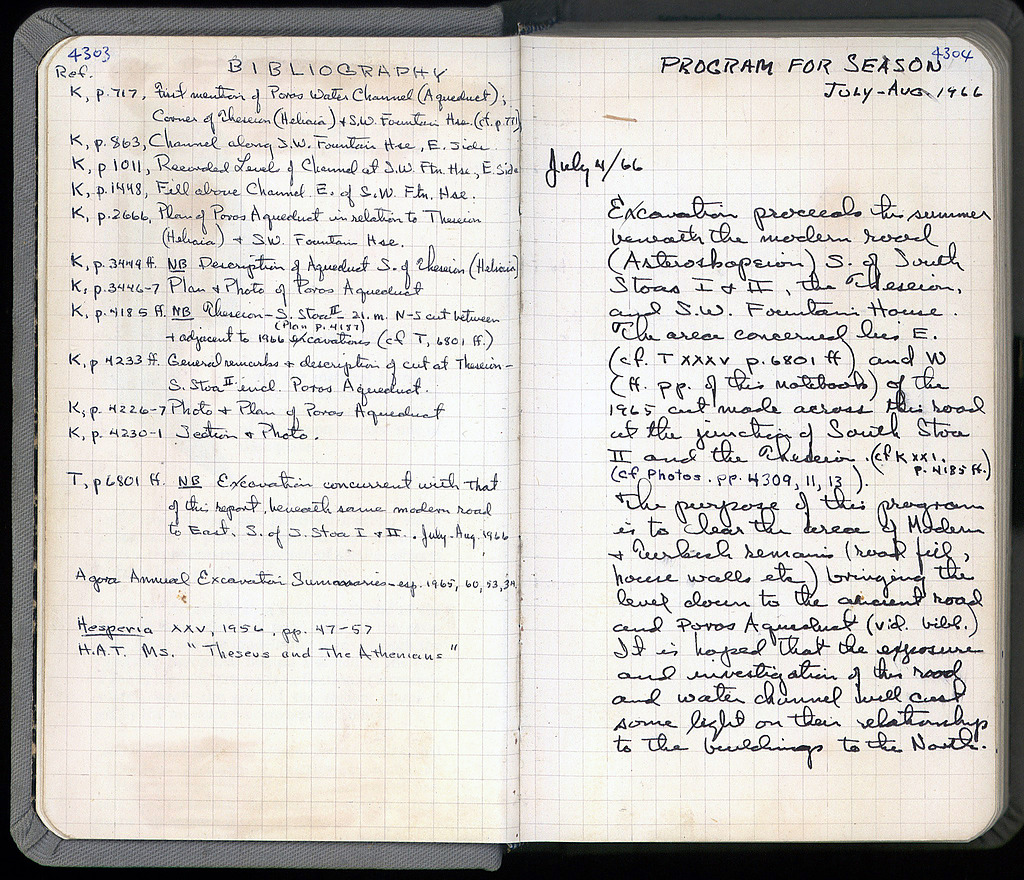 4303
BIBLIOGRAPHY
Ref.
K, p.717, First mention of Poros Water Channel (Aqueduct);
Corner of Theseion (Heliaia) & S.W. Fountain Hse. (cf. p.771)
K, p.863, Channel along S.W. Fountain Hse, E. Side.
K, p 1011, Recorded Level of Channel at S.W. Ftn. Hse, E. Side
K, p.1448, Fill above Channel E. of S.W. Ftn. Hse.
K, p.2666, Plan of Poros Aqueduct in relation to Theseion
(Heliaia) & S.W. Fountain Hse.
K, p.3449 ff. NB Description of Aqueduct S. of Theseion (Heliaia)
K, p.3446-7 Plan & Photo of Poros Aqueduct
K, p.4185 ff. NB Theseion - S. Stoa II - 21. m. N-S cut between
(Plan p. 4187)
& adjacent to 1966 excavations (cf T, 6801 ff.)
K, p 4233 ff. General remarks & description of cut at Theseion -
S. Stoa II incl. Poros Aqueduct.
K, p. 4226-7 Photo & Plan of Poros Aqueduct
K, p. 4230-1 Section & Photo.
T, p 6801 ff. NB Excavation concurrent with that
of this report, beneath same modern road
to East, S. of S. Stoa I & II. July-Aug. 1966
Agora Annual Excavation Summaries - esp. 1965, 60, 53, 34
Hesperia XXV, 1956, pp. 47-57
H.A.T. Ms. "Theseus and The Athenians"
4304
PROGRAM FOR SEASON
JULY-AUG. 1966
July 4/66
Excavation proceeds this summer
beneath the modern road
(Asteroskopeion) S. of South
Stoas I & II, the Theseion,
and S.W. Fountain House.
The area concerned lies E.
(cf. T XXXV p. 6801 ff) and W
(ff. pp. of this notebook) of the
1965 cut made across this road
at the junction of South Stoa
II and the Theseion. (cf K XXI.
p. 4185 ff.)
(cf Photos. pp. 4309, 11, 13 ).
The purpose of this program
is to clear the area of Modern
& Turkish remains (road fill,
house walls etc) bringing the
level down to the ancient road
and Poros Aqueduct (vid. bibl.)
It is hoped that the exposure
and investigation of this road
and water channel will cast
some light on their relationship
to the buildings to the North.